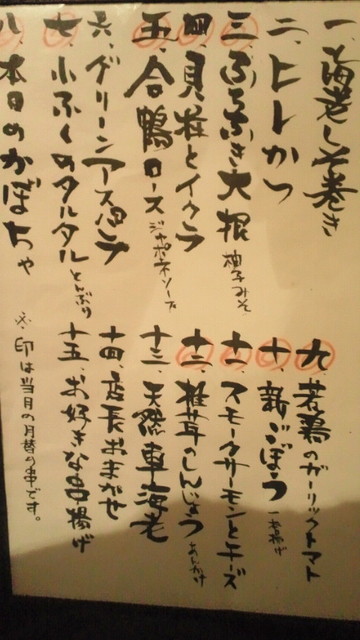 一、海老しそ巻き
二、ヒレかつ
三、ふろふき大根 柚子みそ
四、貝柱とイクラ
五、合鴨ロース ジャポネソース
六、グリーンアスパラ
七、小ふくのタルタル とんぶり
八、本日のかぼちゃ
九、若鶏のガーリックトマト
十、新ごぼう
十一、スモークサーモンとチーズ
十二、椎茸のしんじょう あんかけ
十三、天然車海老
十四、店長おまかせ
十五、お好きな串揚げ
※印は当月の月替の串です。